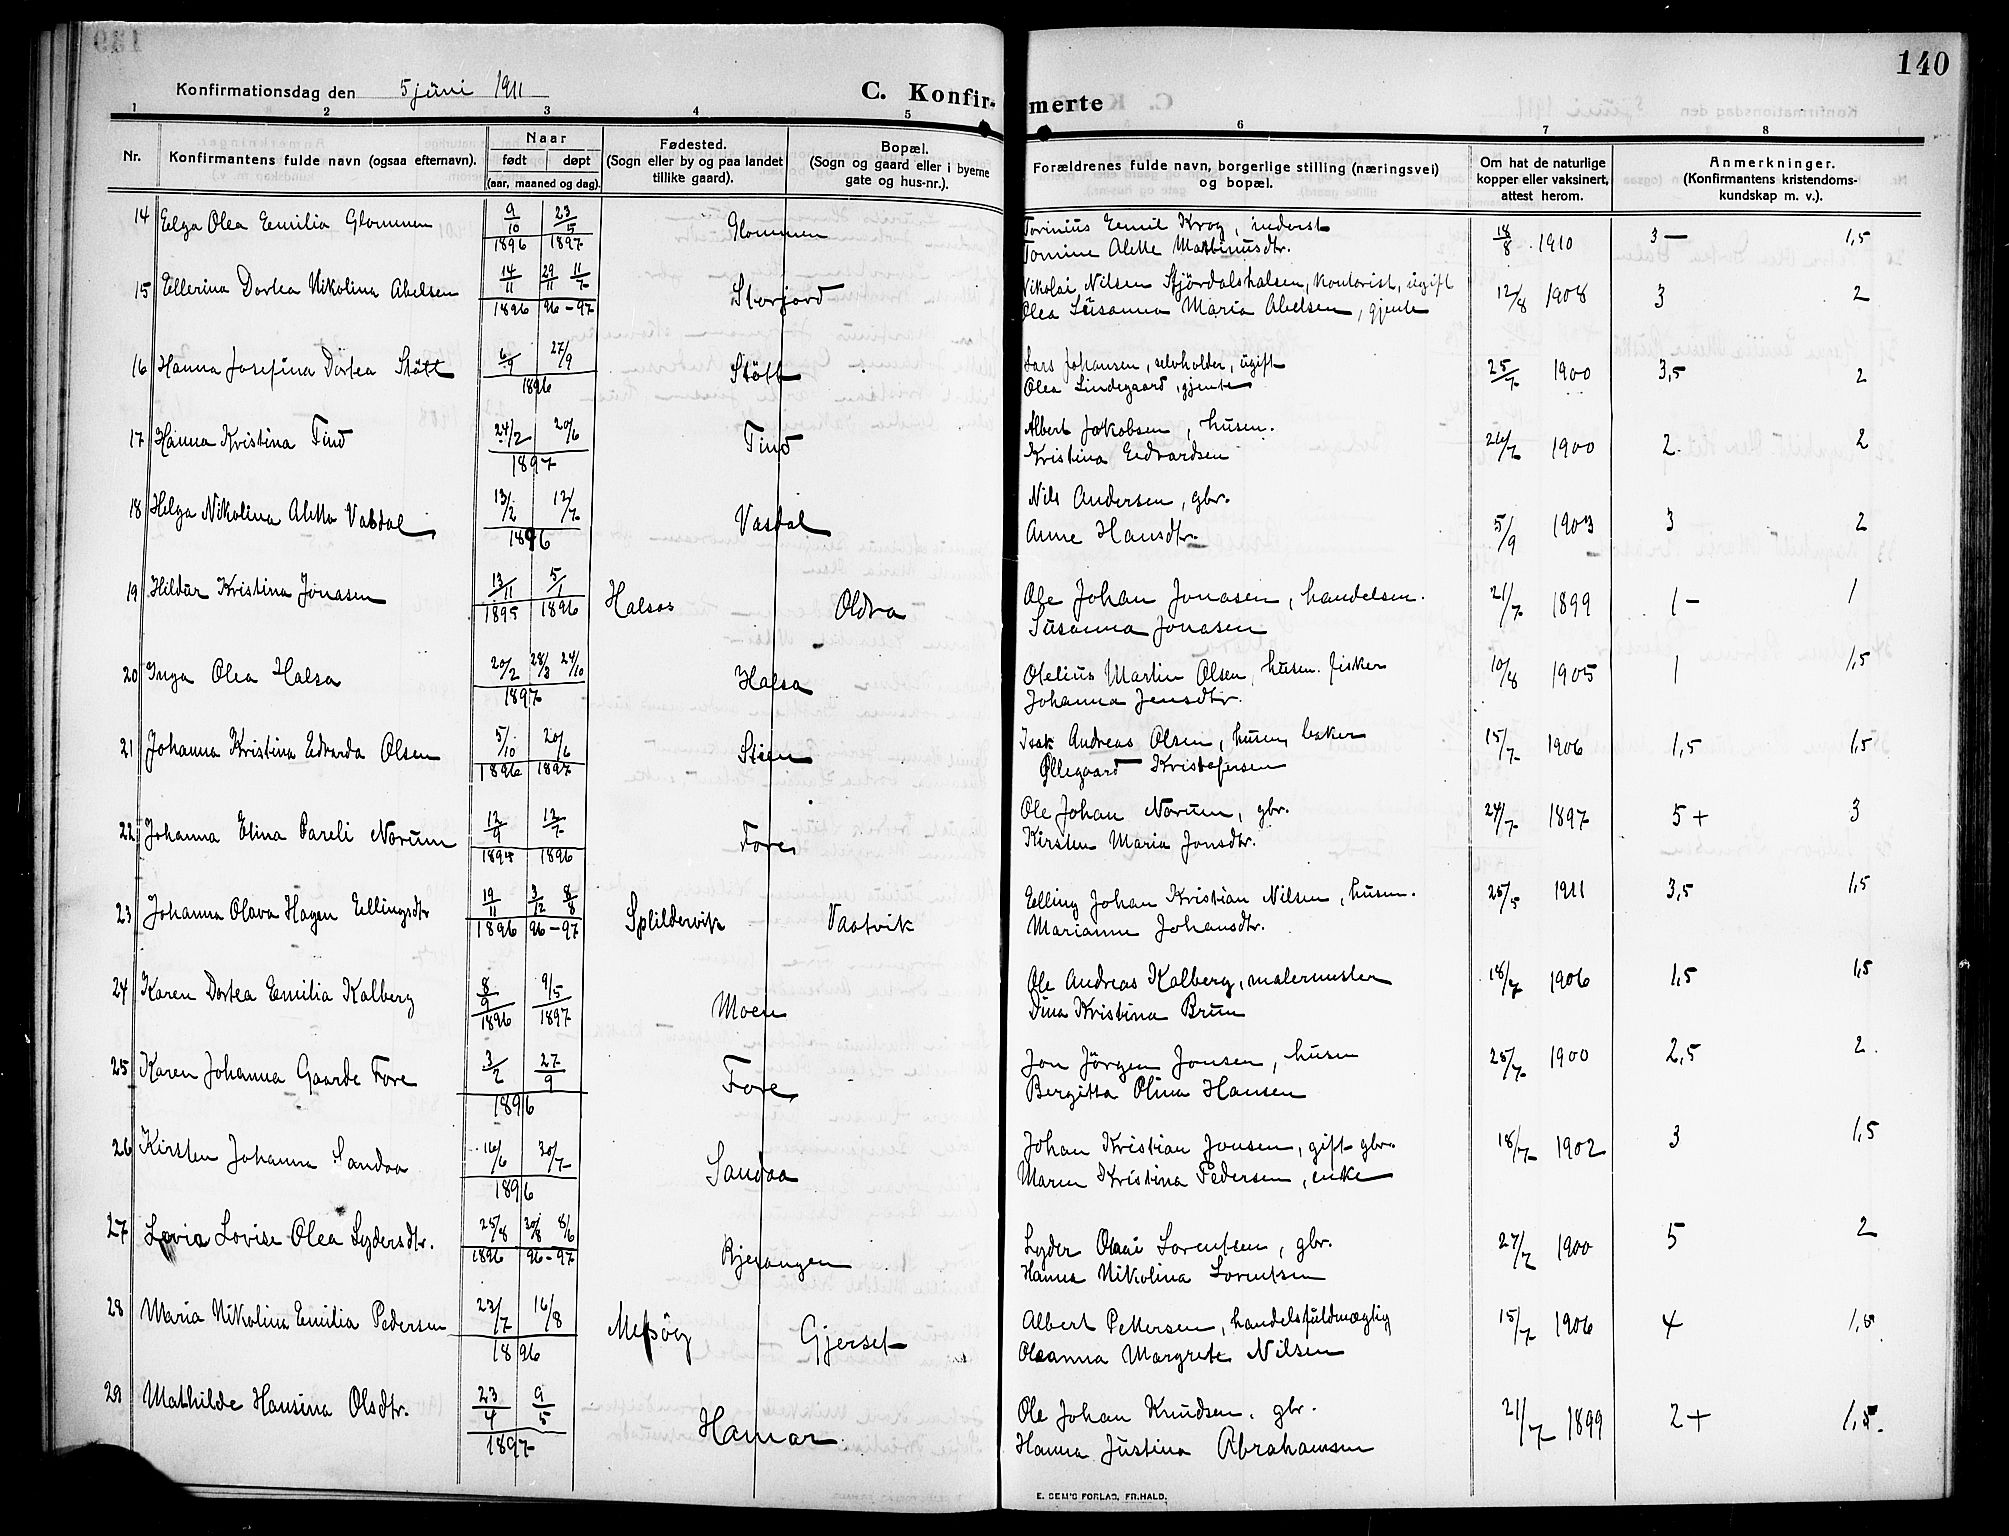 140
Konfirmationsdag den 5 juni 1911
C. Konfir-merte
1 2 3 4 5 6 7 8
Nr.
Konfirmantens fulde navn (ogsaa efternavn).
Naar
født døpt
(aar, maaned og dag).
Fødested.
(Sogn eller by og paa landet
tillike gaard).
Bopæl.
(Sogn og gaard eller i byerne
gate og hus-nr.).
Forældrenes fulde navn, borgerlige stilling (næringsvei)
og bopæl.
Om hat de naturlige
kopper eller vaksinert,
attest herom.
Anmerkninger.
(Konfirmantens kristendoms-
kundskap m. v.).
14 Helga Olea Emilia Glommen 9/10 1896 23/5 1897 Glommen
Torinius Emil Krog, inderst 18/8 1910 3- 1,5
Tomine Alette Martinusdtr.
15 Ellerina Dortea Nikolina Abelsen 14/11 1896 29/11 11/7 96-97 Storjord
Nikolai Nilsen Stjördalshalsen, kontorist, ugift 12/8 1908 3 2
Olea Susanna Maria Abelsen, gjente
16 Hanna Josefina Dortea Stött 6/9 27/9 1896 Stött
Lars Johansen, selvholder, ugift 25/7 1900 3,5 2
Olea Lindegaard, gjente
17 Hanna Kristina Tind 24/2 20/6 1897 Tind
Albert Jakobsen, husm. 26/7 1900 2. 2
Kristina Edvardsen
18 Helga Nikolina Aletta Vasdal 13/2 12/7 1896 Vasdal
Nils Andersen, gbr. 5/9 1903 3 2
Anne Hansdtr.
19 Hildur Kristina Jonasen 13/11 1895 5/1 1896 Halsos Oldra
Ole Johan Jonasen, handelsm. 21/7 1899 1- 1
Susanna Jonasen
20 Inga Olea Halsa 20/2 28/3 24/10 1897 Halsa
Otelius Martin Olsen, husm. fisker 10/8 1905 1 1,5
Johanna Jensdtr.
21 Johanna Kristina Edvarda Olsen 5/10 1896 20/6 1897 Stien
Isak Andreas Olsen, husm, baker 15/7 1906 1,5 1,5
Øllegaard Kristofersen
22 Johanna Elina Pareli Norum 12/9 1895 12/7 1896 Fore
Ole Johan Norum, gbr. 24/7 1897 5+ 3
Kirsten Maria Jonsdtr.
23 Johanna Olava Hagen Ellingsdtr 19/11 1896 3/12 8/8 96-97 Splildervik Vaatvik
Elling Johan Kristian Nilsen, husm. 25/5 1911 3,5 1,5
Marianne Johansdtr.
24 Karen Dortea Emilia Kalberg 8/9 1896 9/5 1897 Moen
Ole Andreas Kalberg, malermester 18/7 1906 1,5 1,5
Dina Kristina Brun
25 Karen Johanna Gaarde Fore 3/2 27/9 1896 Fore
Jon Jörgen Jonsen, husm 25/7 1900 2,5 2.
Bergitta Olina Hansen
26 Kirsten Johanna Sandaa 16/6 30/7 1896 Sandaa
Johan Kristian Jonsen, gift gbr. 18/7 1902 3 1,5
Maren Kristina Pedersen, enke
27 Lovise Olea Lydersdtr. 25/8 1896 30/8 8/6 96-97
Lyder Lorentsen, gbr. 27/7 1900 5 2
Hanna Nikolina Lorentsen
28 Maria Nikolina Emilia Pedersen 23/7 16/8 1896 Mesöy Gjerset
Albert Pettersen, handelsfuldmægtig 15/7 1906 4 1,5
Oleanna Margrete Nilsen
29 Mathilde Hansina Olsdtr. 23/4 9/5 1897 Hamar
Ole Johan Knudsen, gbr. 21/7 1899 2+ 1,5.
Hanna Justina Abrahamsen
E. SEM'S FORLAG, FR.HALD.